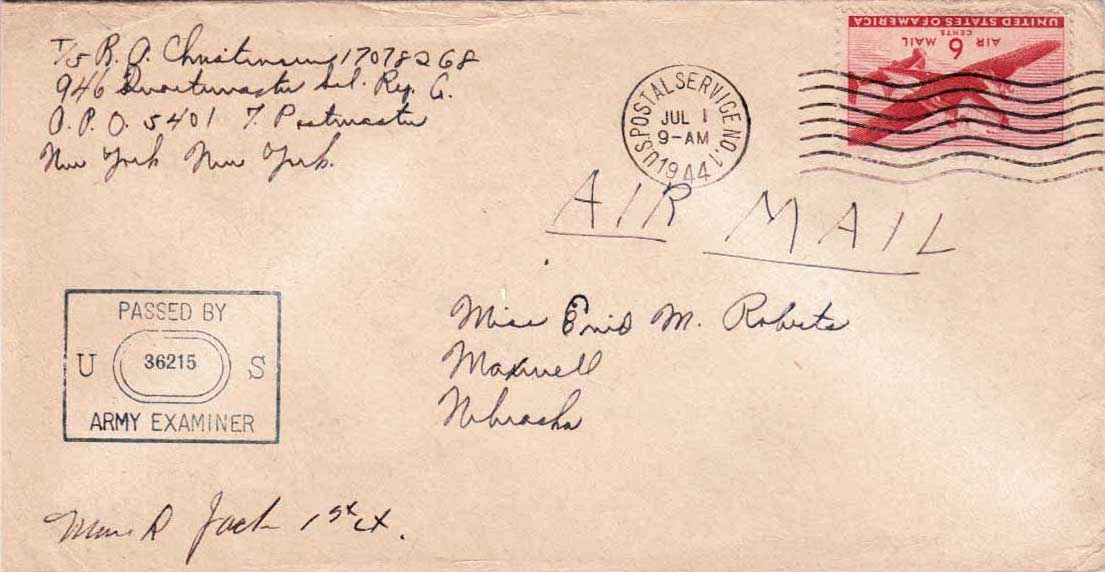 T/5 R. A. Christensen 17078268
946 Quartermaster Sal. Rep. Co.
A.P.O. 5401 % Postmaster
New York New York.
UNITED STATES OF AMERICA
AIR 6 MAIL
CENTS
U.S. POSTAL SERVICE NO. 1
JUL 1
9-AM
1944
AIR MAIL
Miss Enid M. Roberts
Maxwell
Nebraska
PASSED BY
U 36215 S
ARMY EXAMINER
R Jack 1st Lt.